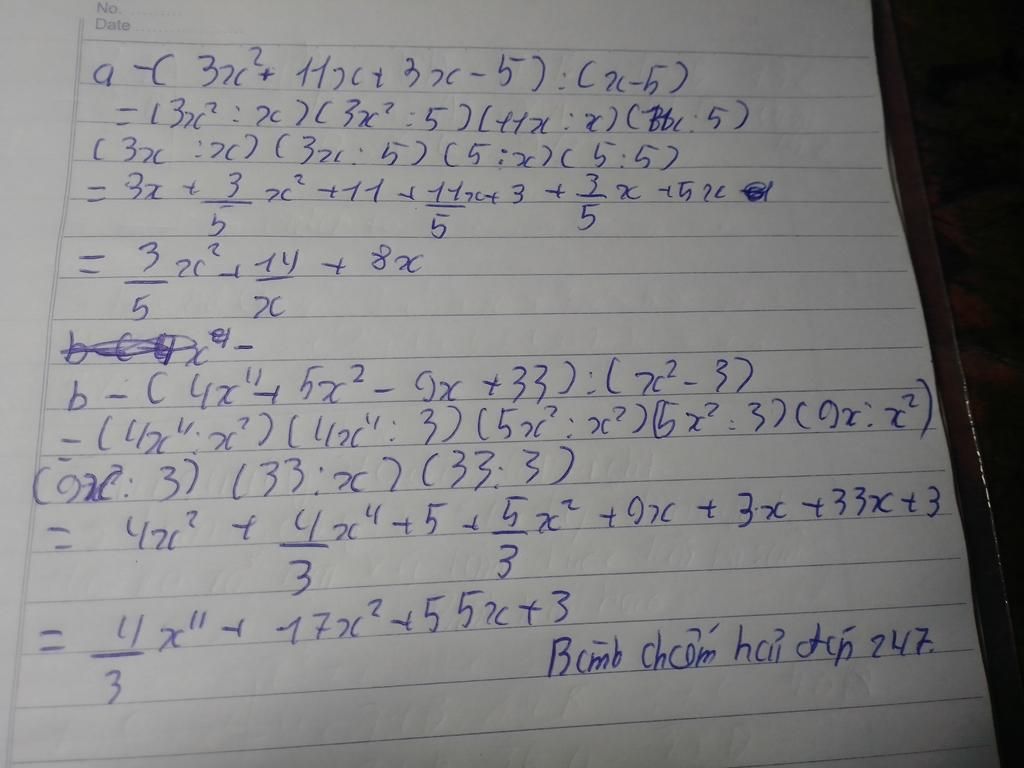 No.
Date
a - ( 3x² + 11x + 3x - 5 ) : ( x - 5 )
= ( 3x² : x ) ( 3x² : 5 ) ( 11x : x ) ( 11x : 5 )
( 3x : x ) ( 3x : 5 ) ( 5 : x ) ( 5 : 5 )
= 3x + 3/5 x² + 11 + 11x/5 + 3 + 3/5 x + 5x
= 3/5 x² + 14/x + 8x
x⁴ -
b - ( 4x⁴ + 5x² - 9x + 33 ) : ( x² - 3 )
= ( 4x⁴ : x² ) ( 4x⁴ : 3 ) ( 5x² : x² ) ( 5x² : 3 ) ( 9x : x² )
( 9x : 3 ) ( 33 : x ) ( 33 : 3 )
= 4x² + 4/3 x⁴ + 5 + 5/3 x² + 9x + 3x + 33x + 3
= 4/3 x⁴ + 17x² + 55x + 3
247.